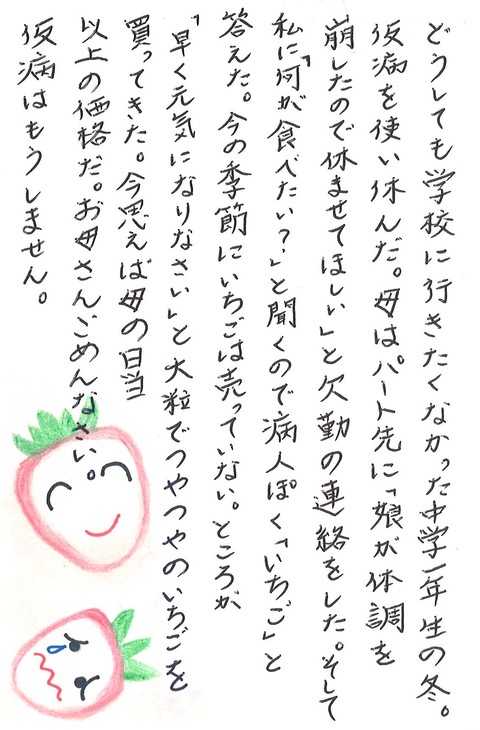 どうしても学校に行きたくなかった中学一年生の冬。
仮病を使い休んだ。母はパート先に「娘が体調を
崩したので休ませてほしい」と欠勤の連絡をした。そして
私に「何が食べたい？」と聞くので病人ぽく「いちご」と
答えた。今の季節にいちごは売っていない。ところが
「早く元気になりなさい」と大粒でつやつやのいちごを
買ってきた。今思えば母の日当
以上の価格だ。お母さんごめんなさい。
仮病はもうしません。